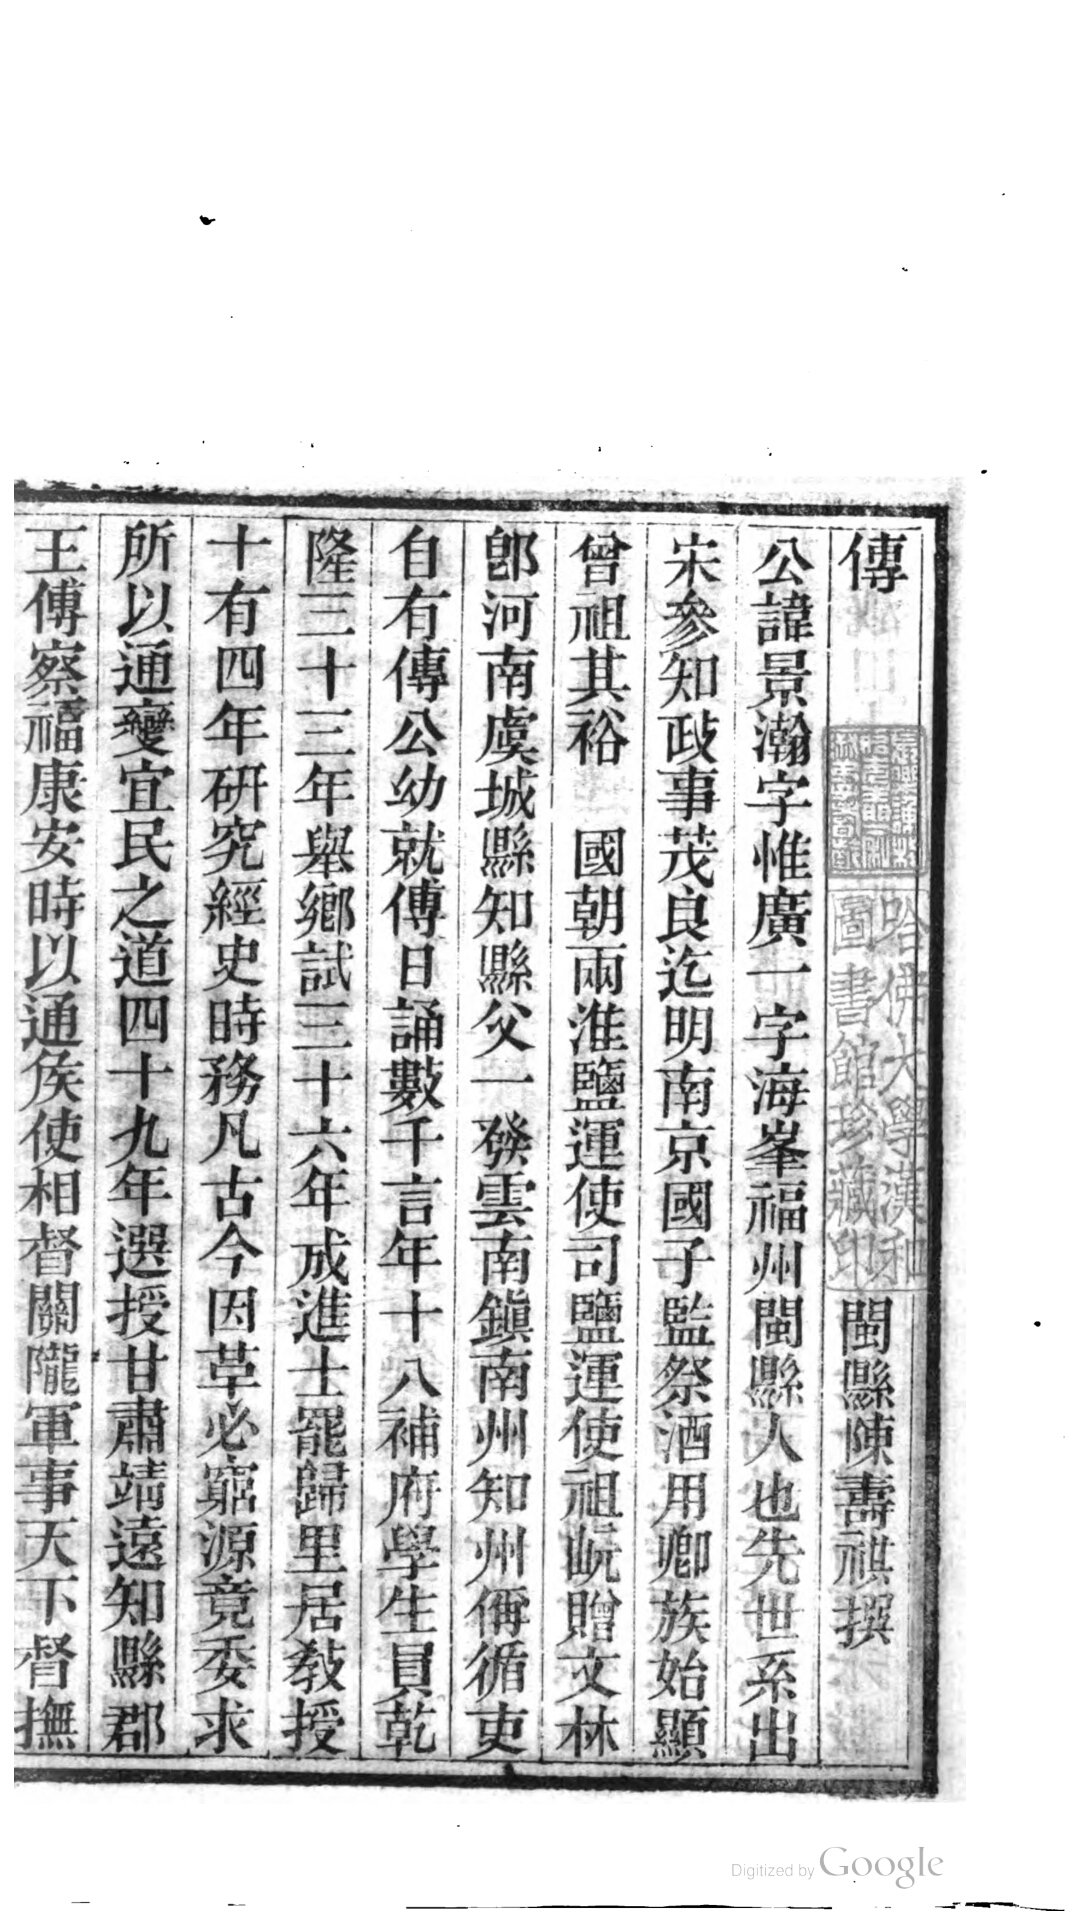 傳
閩縣陳壽祺撰
公諱景瀚字惟廣一字海峯福州閩縣人也先世系出
宋參知政事茂良迄明南京國子監祭酒用卿族始顯
曾祖其裕　國朝兩淮鹽運使司鹽運使祖岏贈文林
郎河南虞城縣知縣父一發雲南鎮南州知州偁循吏
自有傳公幼就傅日誦數千言年十八補府學生員乾
隆三十三年舉鄉試三十六年成進士罷歸里居敎授
十有四年研究經史時務凡古今因革必窮源竟委求
所以通變宜民之道四十九年選授甘肅靖遠知縣郡
王傅察福康安時以通侯使相督關隴軍事天下督撫
哈佛大學漢和
圖書館珍藏印
Digitized by Google